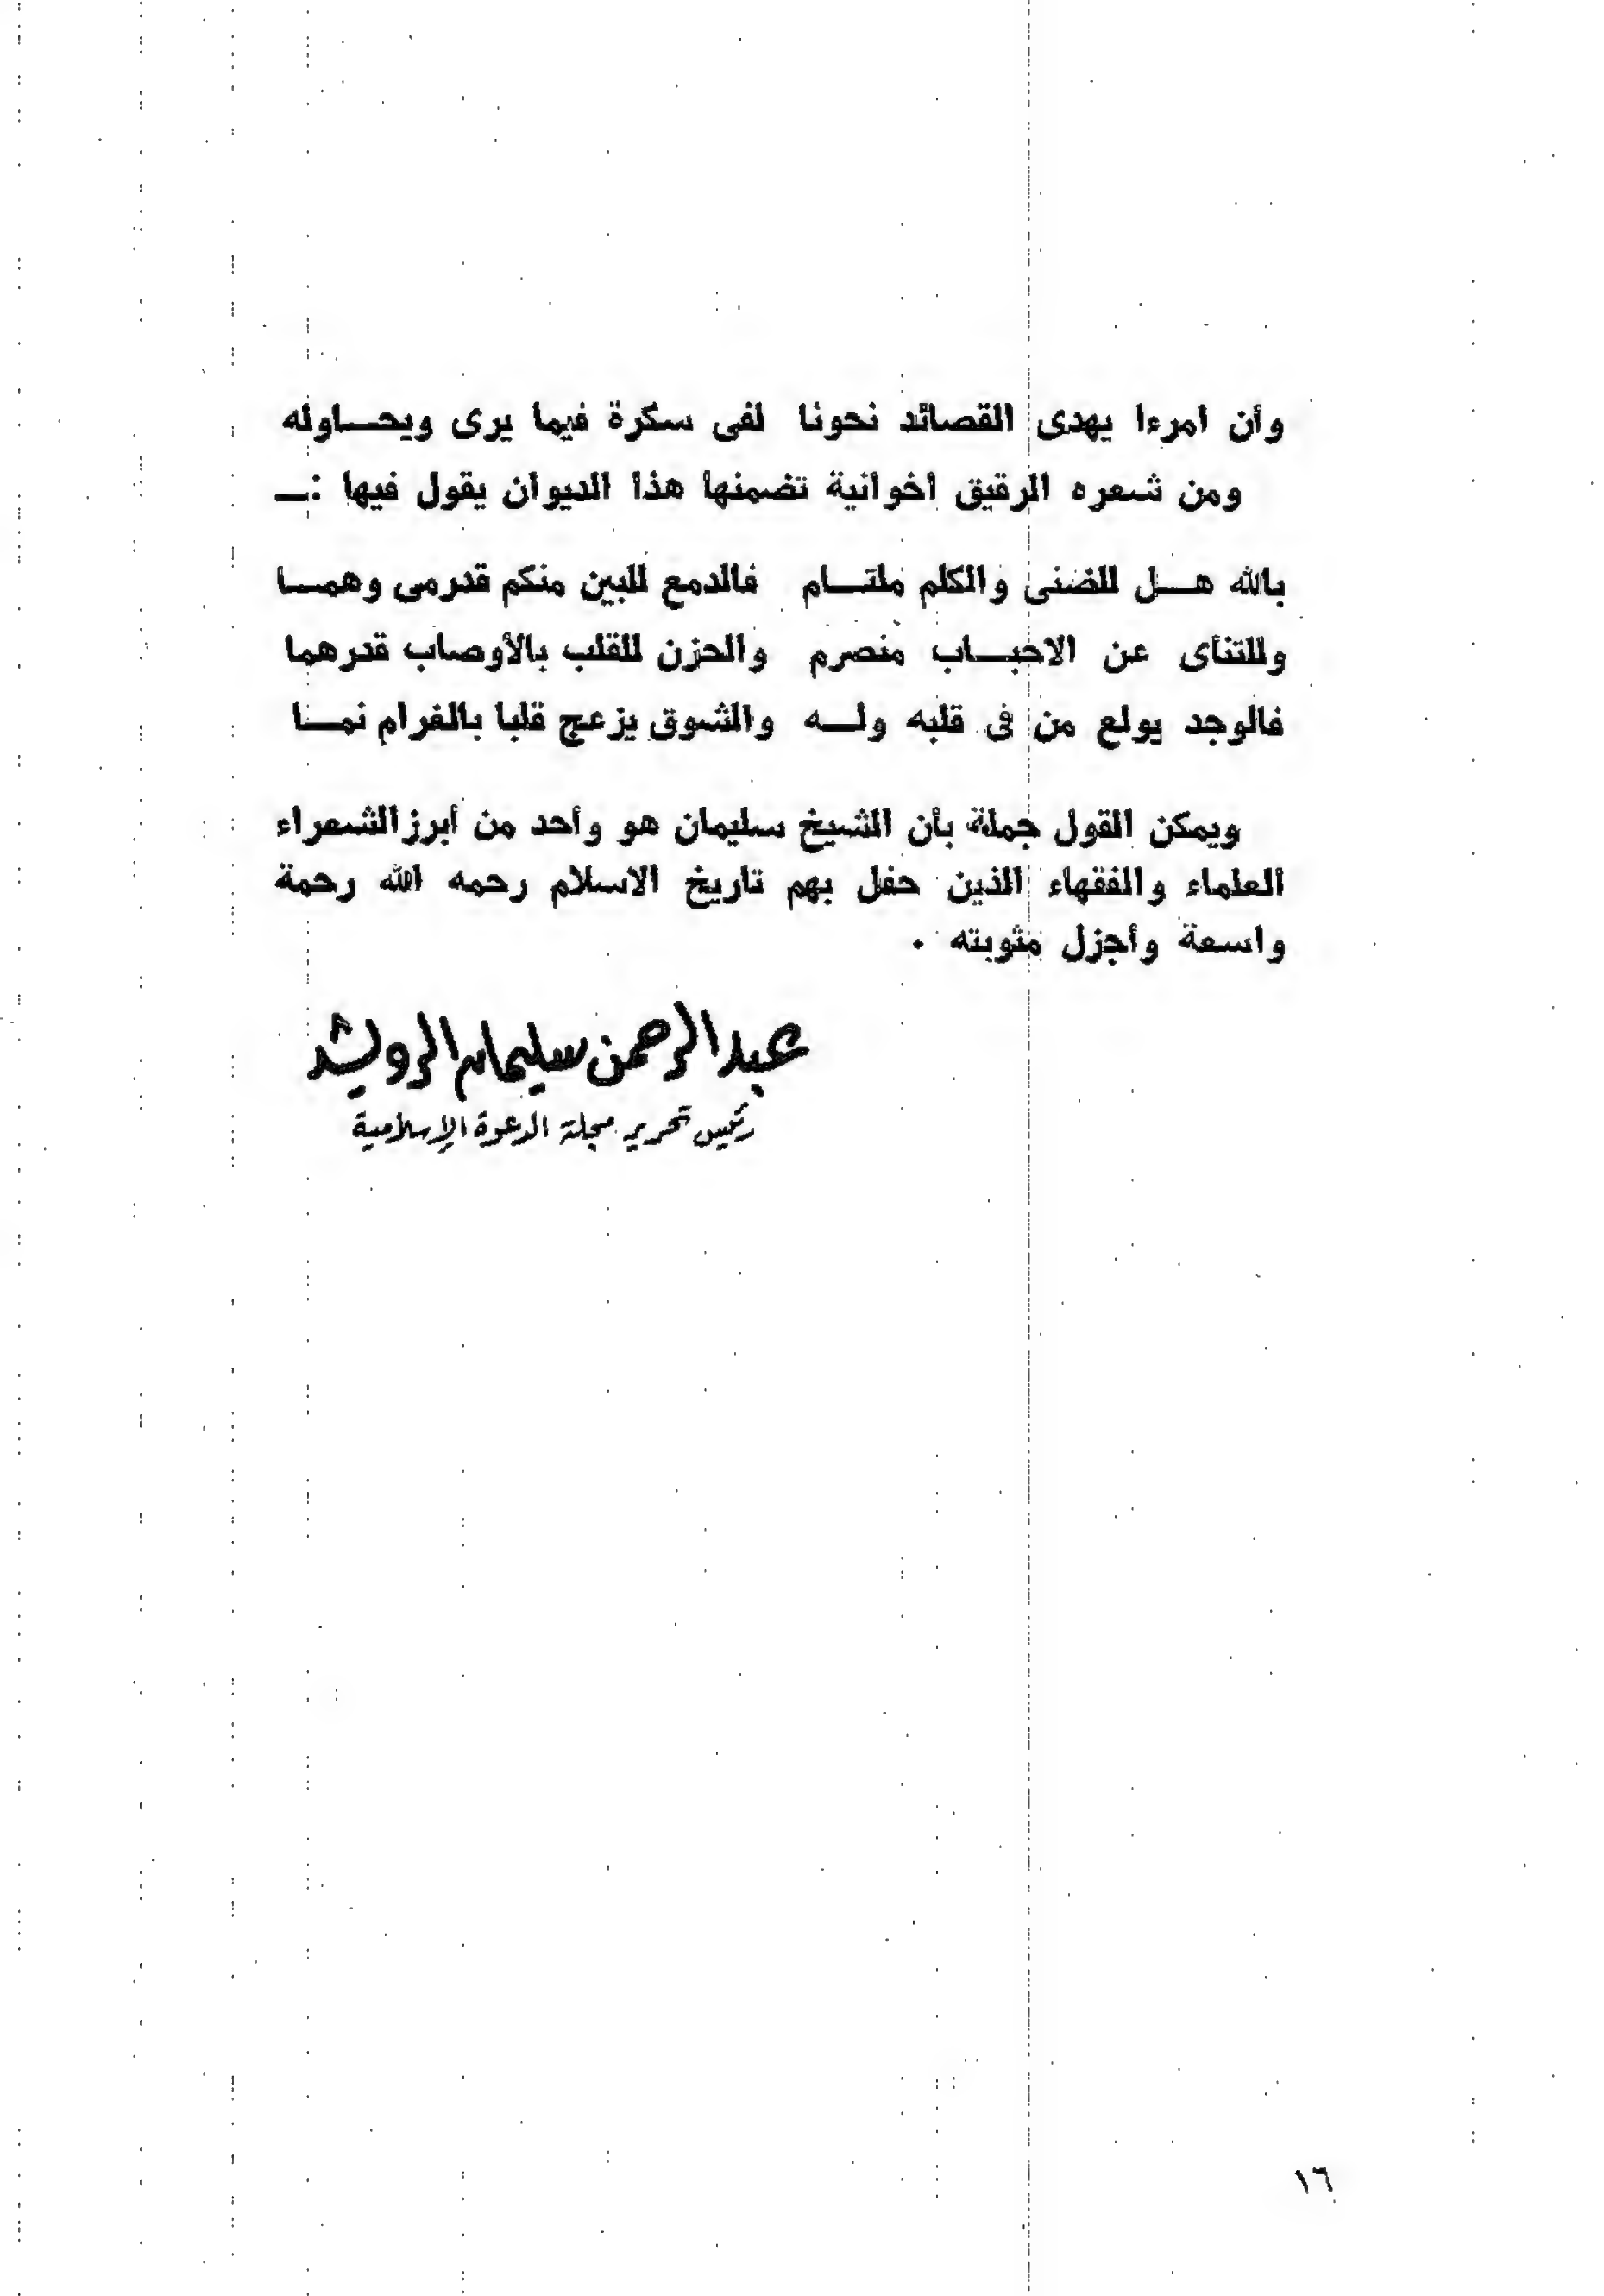 وأن امرءا يهدى القصائد نحونا لفى سكرة فيما يرى ويحاوله
ومن شعره الرقيق أخوانية تضمنها هذا الديوان يقول فيها :ـ
بالله هل للضنى والكلم ملتام فالدمع للبين منكم قدرمى وهما
وللتنأى عن الاحباب منصرم والحزن للقلب بالأوصاب قدرهما
فالوجد يولع من فى قلبه وله والشوق يزعج قلبا بالغرام نما
ويمكن القول جملة بأن الشيخ سليمان هو وأحد من أبرز الشعراء
العلماء والفقهاء الذين حفل بهم تاريخ الاسلام رحمه الله رحمة
واسعة وأجزل مثوبته .
عبد الرحمن سليمان الرويشد
رئيس تحرير مجلة الدعوة الإسلامية
١٦